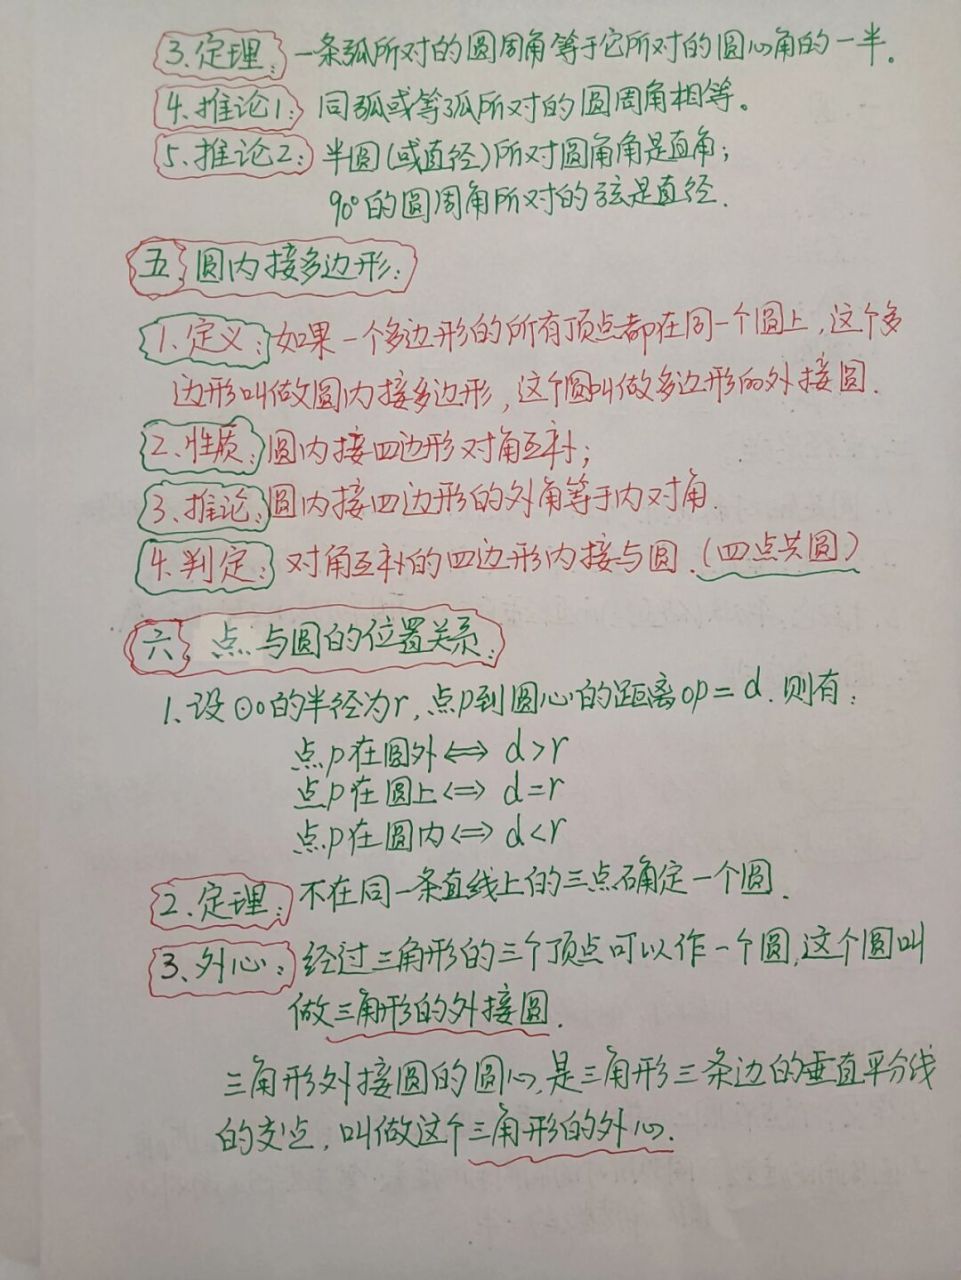 3.定理：一条弧所对的圆周角等于它所对的圆心角的一半。
4.推论1：同弧或等弧所对的圆周角相等。
5.推论2：半圆(或直径)所对圆角角是直角；
90°的圆周角所对的弦是直径.
五、圆内接多边形：
1.定义：如果一个多边形的所有顶点都在同一个圆上,这个多
边形叫做圆内接多边形,这个圆叫做多边形的外接圆.
2.性质：圆内接四边形对角互补；
3.推论：圆内接四边形的外角等于内对角.
4.判定：对角互补的四边形内接与圆.(四点共圆)
六、点与圆的位置关系：
1.设⊙O的半径为r,点P到圆心的距离OP=d.则有：
点P在圆外⇔d>r
点P在圆上⇔d=r
点P在圆内⇔d<r
2.定理：不在同一条直线上的三点确定一个圆.
3.外心：经过三角形的三个顶点可以作一个圆,这个圆叫
做三角形的外接圆.
三角形外接圆的圆心,是三角形三条边的垂直平分线
的交点,叫做这个三角形的外心.